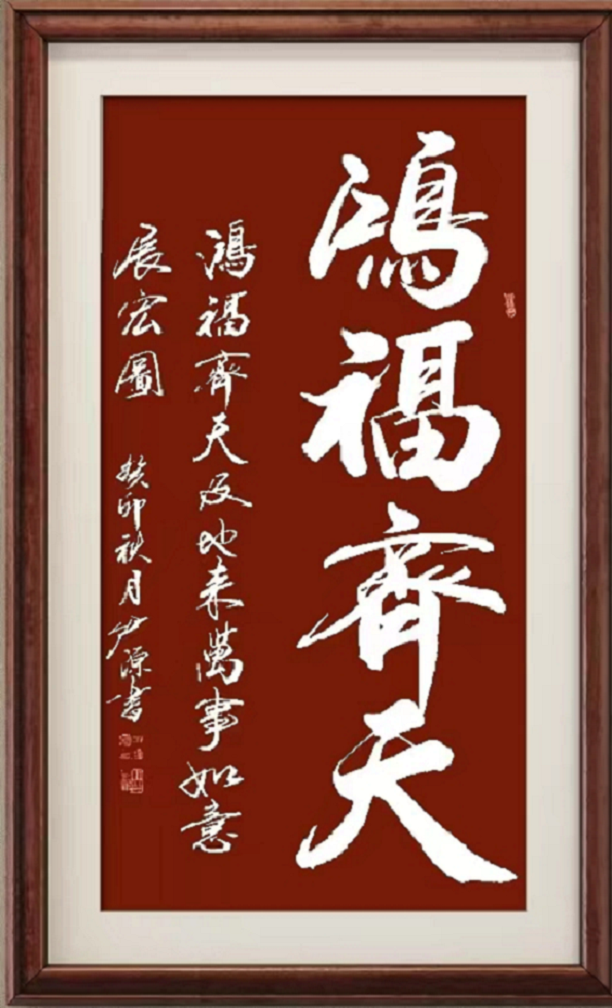 鴻福齊天
鴻福齊天及地来萬事如意
展宏圖 癸卯秋月 源書